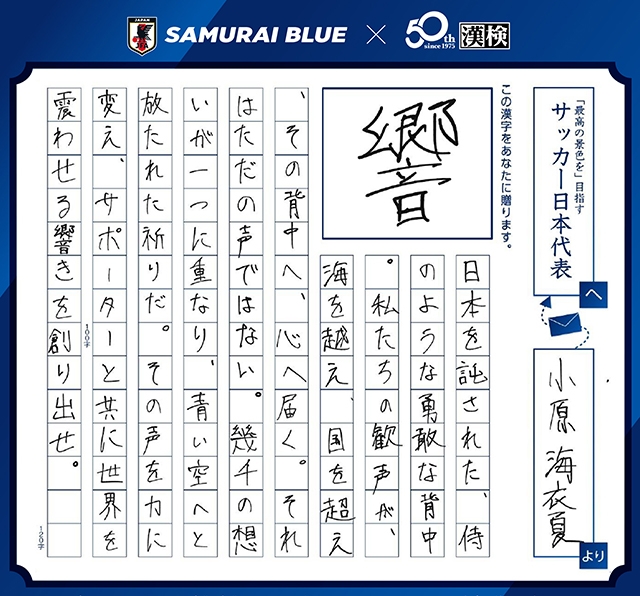 JAPAN
SAMURAI BLUE × 50th since 1975 漢検
「最高の景色を」目指す
サッカー日本代表
へ
小原 海衣夏
より
この漢字をあなたに贈ります。
響
日本を託された、侍
のような勇敢な背中
。私たちの歓声が、
海を越え、国を超え
、その背中へ、心へ届く。それ
はただの声ではない。幾千の想
いが一つに重なり、青い空へと
放たれた祈りだ。その声を力に
変え、サポーターと共に世界を
100字
震わせる響きを創り出せ。
120字